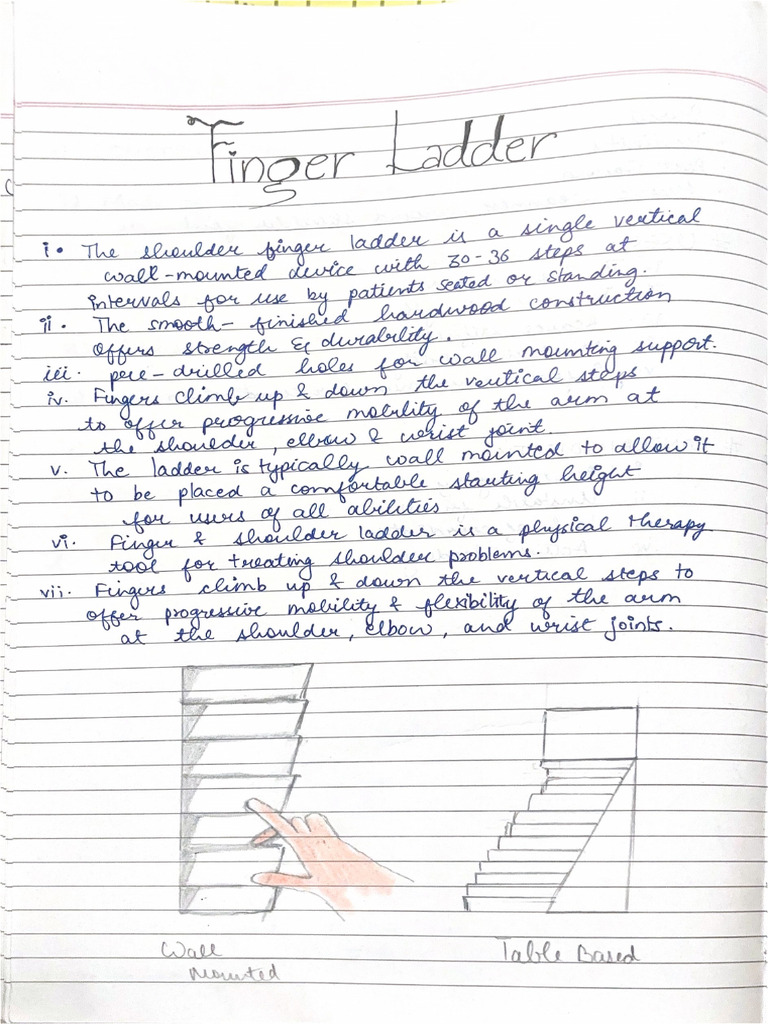 Finger Ladder
i. The shoulder finger ladder is a single vertical
wall-mounted device with 30-36 steps at
intervals for use by patients seated or standing.
ii. The smooth-finished hardwood construction
offers strength & durability.
iii. pre-drilled holes for wall mounting support.
iv. Fingers climb up & down the vertical steps
to offer progressive mobility of the arm at
the shoulder, elbow & wrist joint.
v. The ladder is typically wall mounted to allow it
to be placed a comfortable starting height
for users of all abilities
vi. Finger & shoulder ladder is a physical therapy
tool for treating shoulder problems.
vii. Fingers climb up & down the vertical steps to
offer progressive mobility & flexibility of the arm
at the shoulder, elbow, and wrist joints.
Wall
Mounted
Table Based